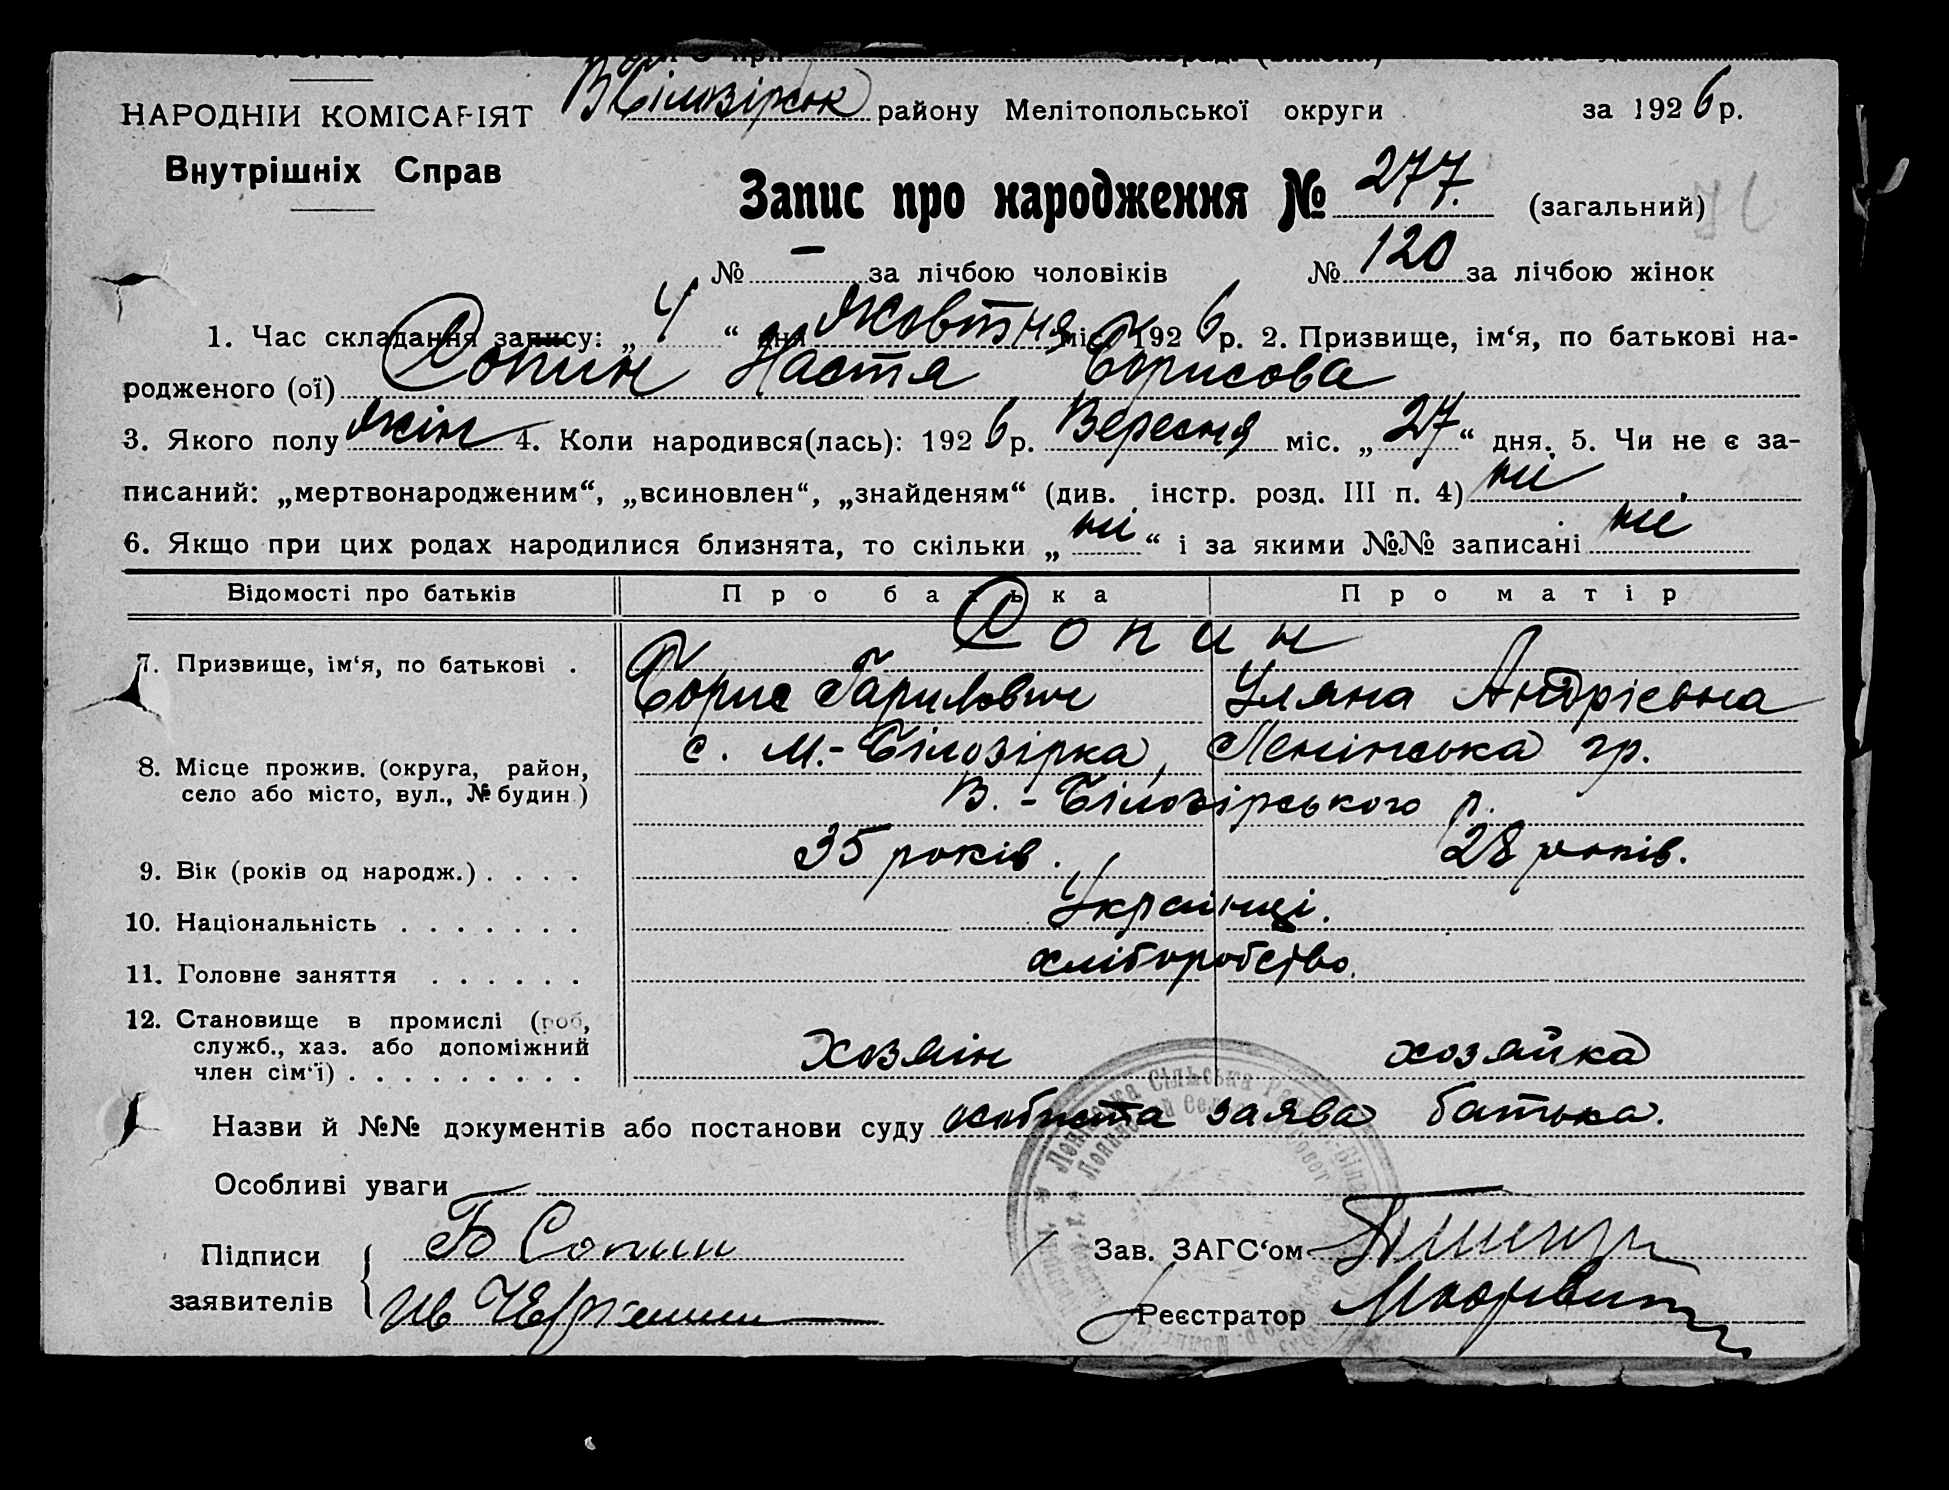 НАРОДНІЙ КОМІСАРІЯТ
Внутрішніх Справ
В Білозірськ району Мелітопольської округи за 1926 р.
Запис про народження № 277. (загальний)
№ – за лічбою чоловіків № 120 за лічбою жінок
1. Час складання запису: „ 4 “ дня Жовтня міс. 1926 р. 2. Призвище, ім‘я, по батькові на-
родженого (ої) Сопин Настя Борисова
3. Якого полу жін 4. Коли народився(лась): 1926 р. Вересня міс. „ 27 “ дня. 5. Чи не є за-
писаний: „мертвонародженим“, „всиновлен“, „знайденям“ (див. інстр. розд. III п. 4) ні
6. Якщо при цих родах народилися близнята, то скільки „ ні “ і за якими №№ записані ні
Відомості про батьків Про батька Про матір
Сопин
7. Призвище, ім‘я, по батькові . Борис Гарилович Уляна Андрієвна
8. Місце прожив. (округа, район, с. М.-Білозірка, Ленінська гр.
село або місто, вул., № будин.) В.-Білозірського р.
9. Вік (років од народж.) . . . . 35 років. 28 років.
10. Національність . . . . . . . Українці.
11. Головне заняття . . . . . . хліборобство.
12. Становище в промислі (роб,
служб., хаз. або допоміжний
член сім‘ї) . . . . . . . . . хозяін хозяйка
Назви й №№ документів або постанови суду особиста заява батька.
Особливі уваги
Підписи Б Сопин
заявителів Ив
Зав. ЗАГС‘ом
Реєстратор
Сільська